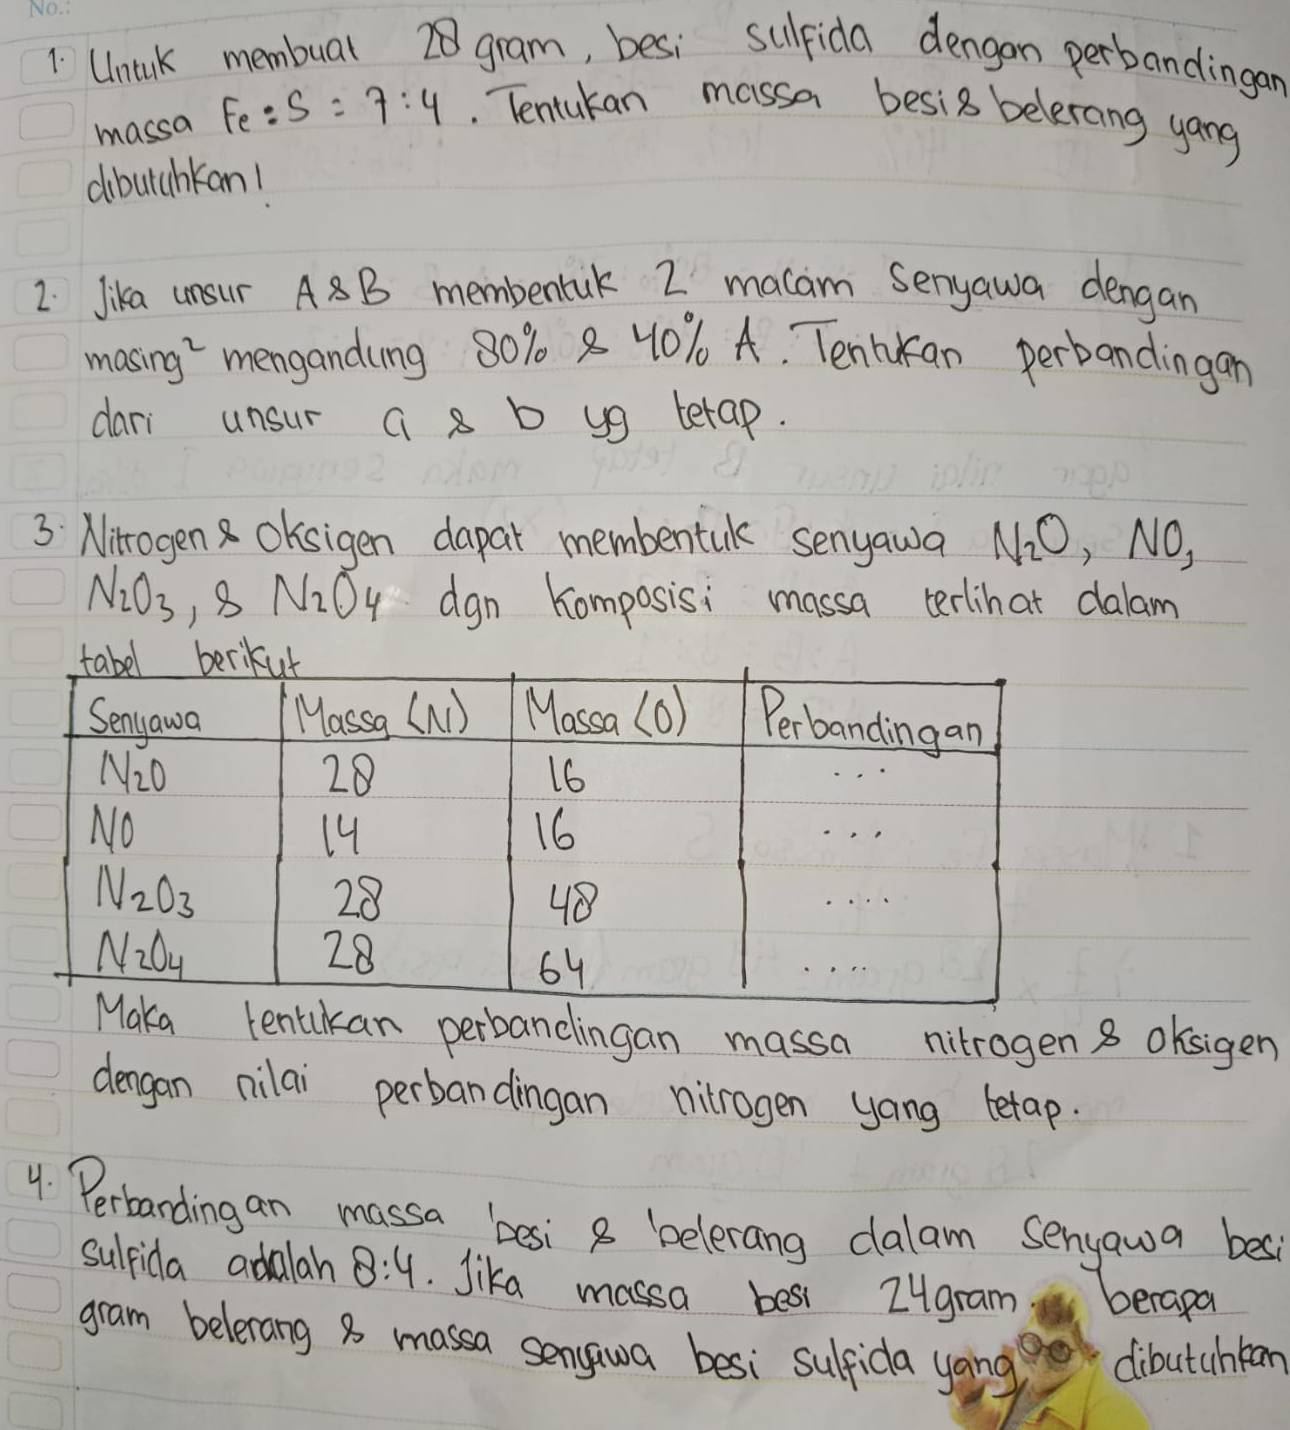 No.:
1. Untuk membuat 28 gram, besi sulfida dengan perbandingan
massa Fe : S = 7 : 4. Tentukan massa besi & belerang yang
dibutuhkan!
2. Jika unsur A & B membentuk 2 macam senyawa dengan
masing² mengandung 80% & 40% A. Tentukan perbandingan
dari unsur a & b yg tetap.
3. Nitrogen & Oksigen dapat membentuk senyawa N₂O, NO,
N₂O₃, & N₂O₄ dgn komposisi massa terlihat dalam
tabel berikut
Senyawa Massa (N) Massa (O) Perbandingan
N₂O 28 16 ...
NO 14 16 ...
N₂O₃ 28 48 ....
N₂O₄ 28 64 ....
Maka tentukan perbandingan massa nitrogen & oksigen
dengan nilai perbandingan nitrogen yang tetap.
4. Perbandingan massa besi & belerang dalam senyawa besi
sulfida adalah 8:4. Jika massa besi 24 gram. berapa
gram belerang & massa senyawa besi sulfida yang dibutuhkan